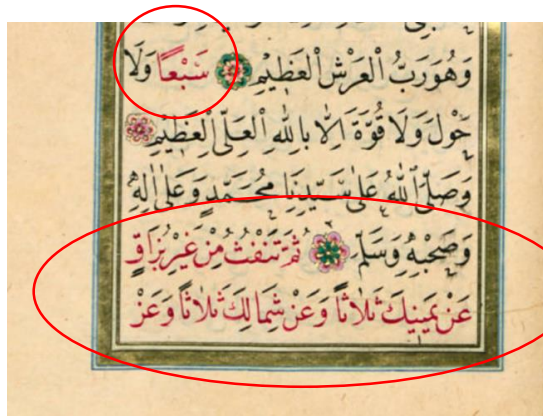 وَهُوَ رَبُّ الْعَرْشِ الْعَظِيْمِ سَبْعًا وَلَا
حَوْلَ وَلَا قُوَّةَ اِلَّا بِاللّٰهِ الْعَلِيِّ الْعَظِيْمِ
وَصَلَّى اللّٰهُ عَلٰى سَيِّدِنَا مُحَمَّدٍ وَعَلٰى اٰلِهٖ
وَصَحْبِهٖ وَسَلَّمَ ثُمَّ تَنْفُثُ مِنْ غَيْرِ بُزَاقٍ
عَنْ يَمِيْنِكَ ثَلَاثًا وَعَنْ شِمَالِكَ ثَلَاثًا وَعَنْ